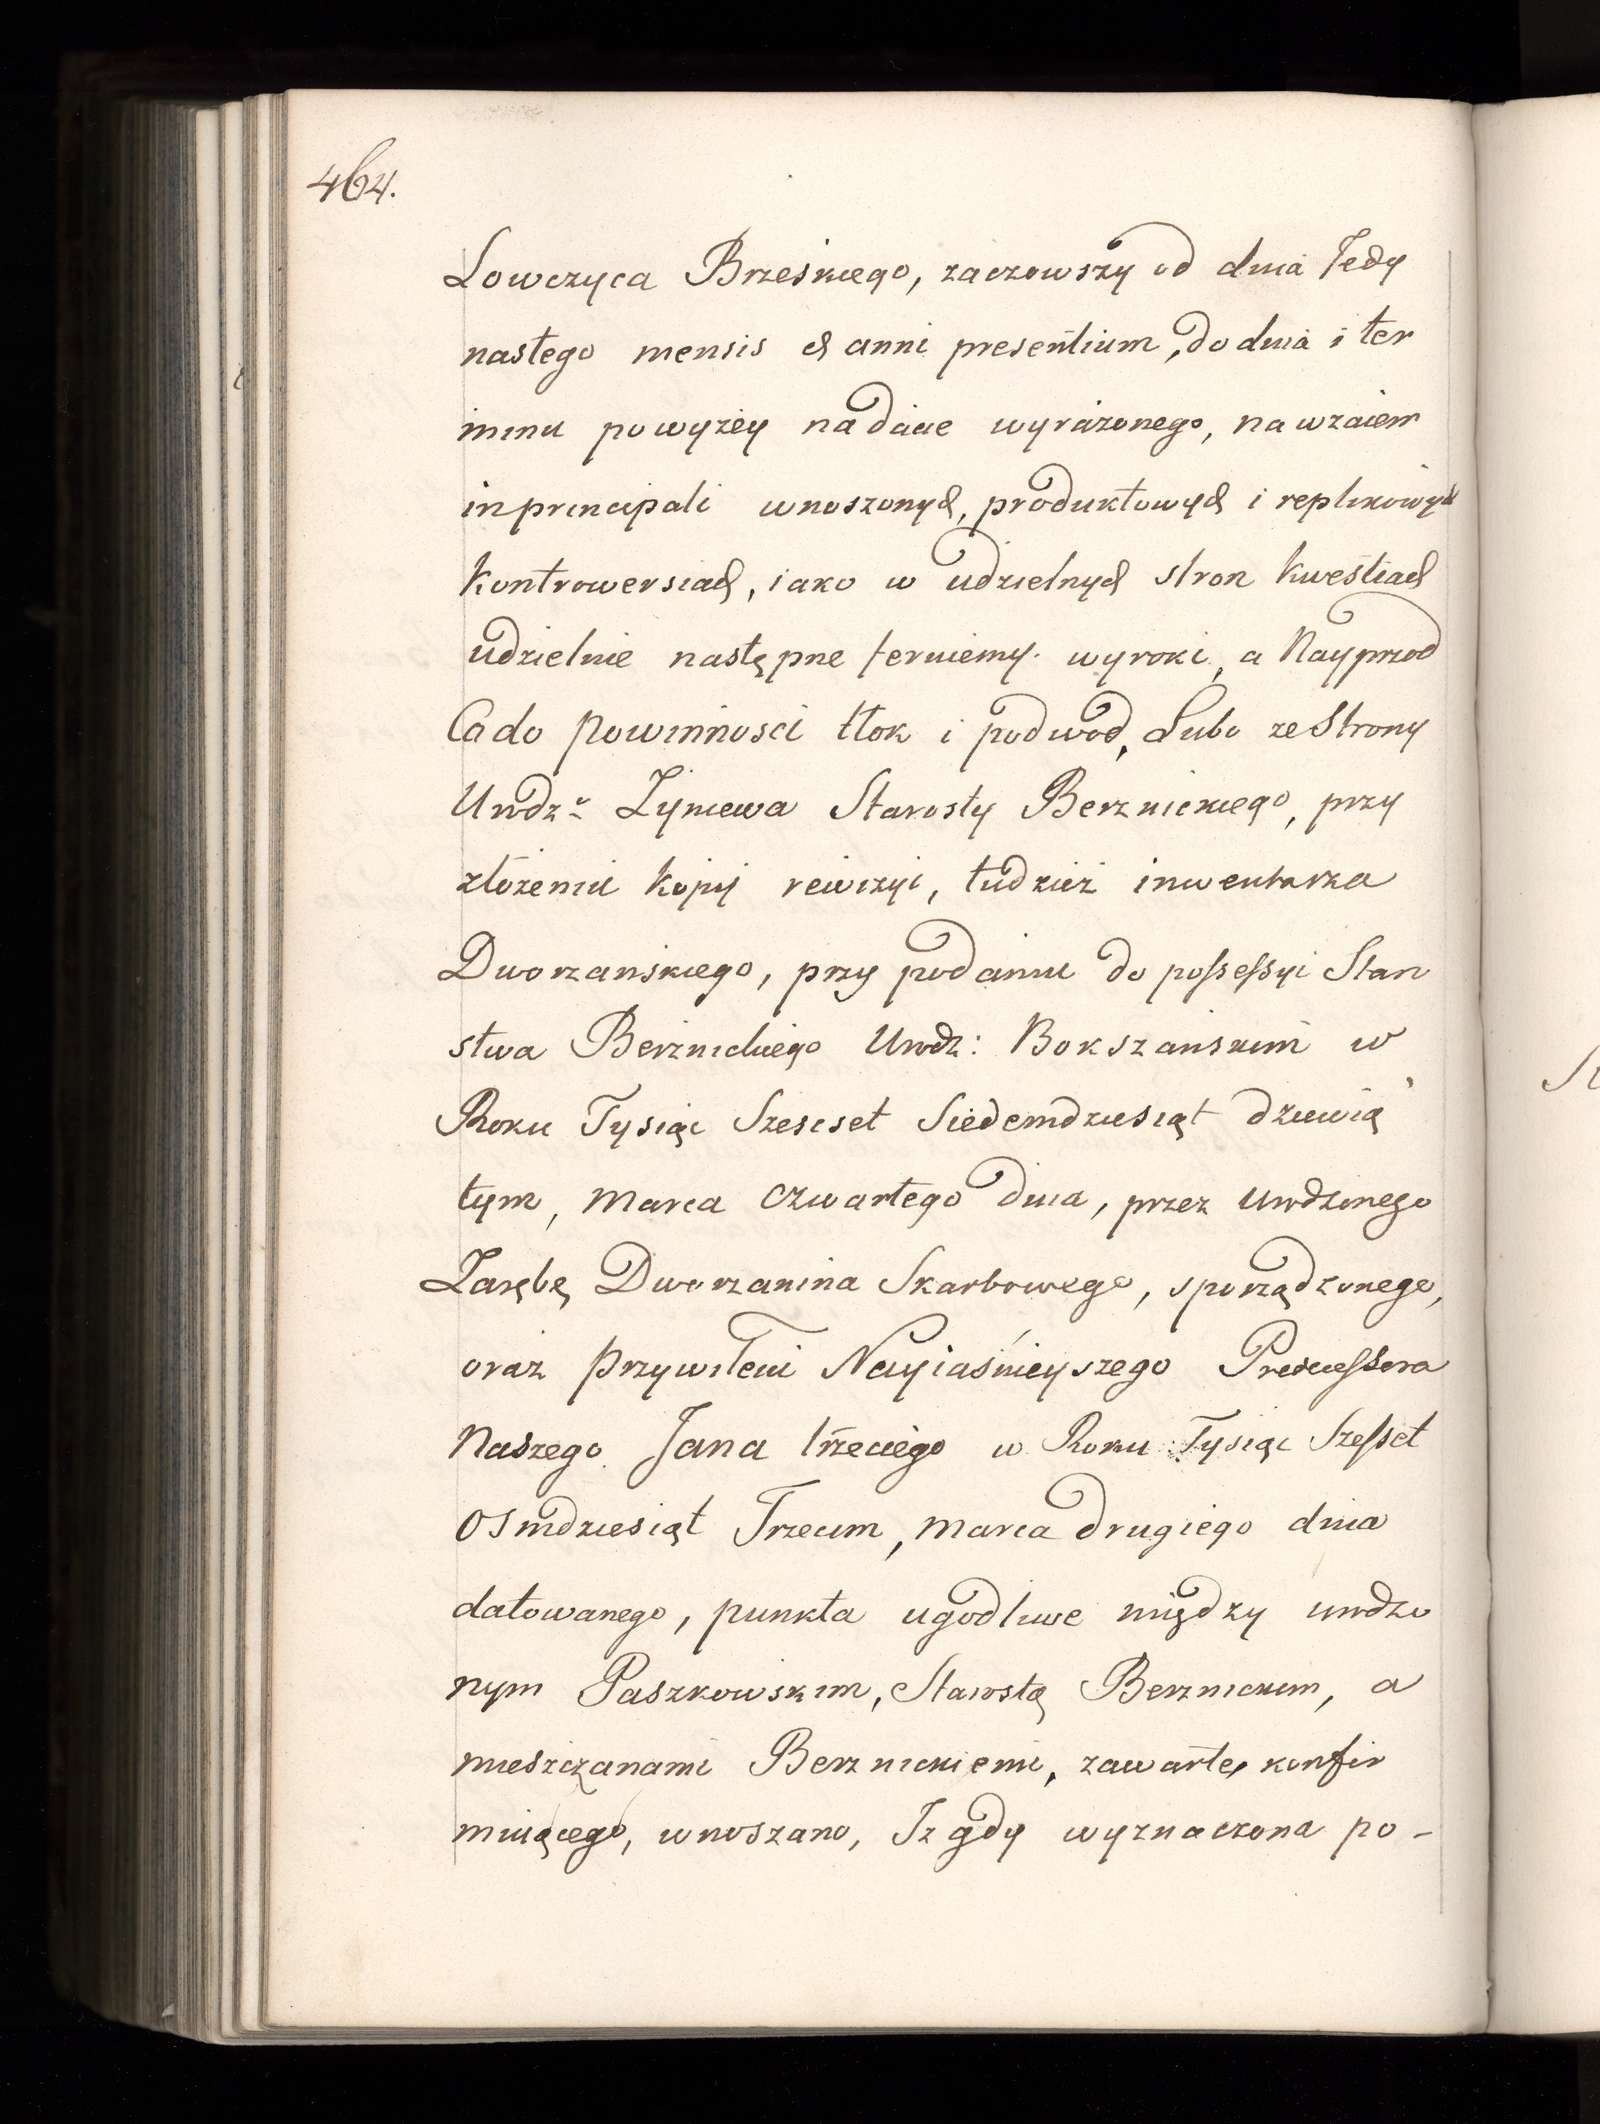 464.
Lowczyca Brzeskiego, zacząwszy od dnia Jedy
nastego mensis & anni presentium, do dnia i ter
minu powyzey na dacie wyrażonego, na wzaiem
in principali wnoszonych, produktowych i replikowych
kontrowersiach, iako w udzielnych stron kwestiach
udzielnie następne ferniemy wyroki, a Nayprzod
Co do powinnosci tłok i podwod, Lubo ze Strony
Urodz: Zyniewa Starosty Berznickiego, przy
złożeniu kopij rewizyi, tudzież inwentarza
Dworzanskiego, przy podaniu do possessyi Staro
stwa Berznickiego Urodz: Bokszańskim w
Roku Tysiąc Szescset Siedemdziesiąt dziewią
tym, Marca czwartego dnia, przez urodzonego
Zarębę Dworzanina Skarbowego, sporządzonego,
oraz przywileiu Nayiaśnieyszego Predecessora
Naszego Jana trzeciego w Roku Tysiąc Szesset
Osmdziesiąt Trzecim, Marca drugiego dnia
datowanego, punkta ugodliwe między urodzo
nym Paszkowskim, Starostą Berznickim, a
mieszczanami Berznickiemi, zawarte, konfir
muiącego, wnoszano, Iz gdy wyznaczona po-